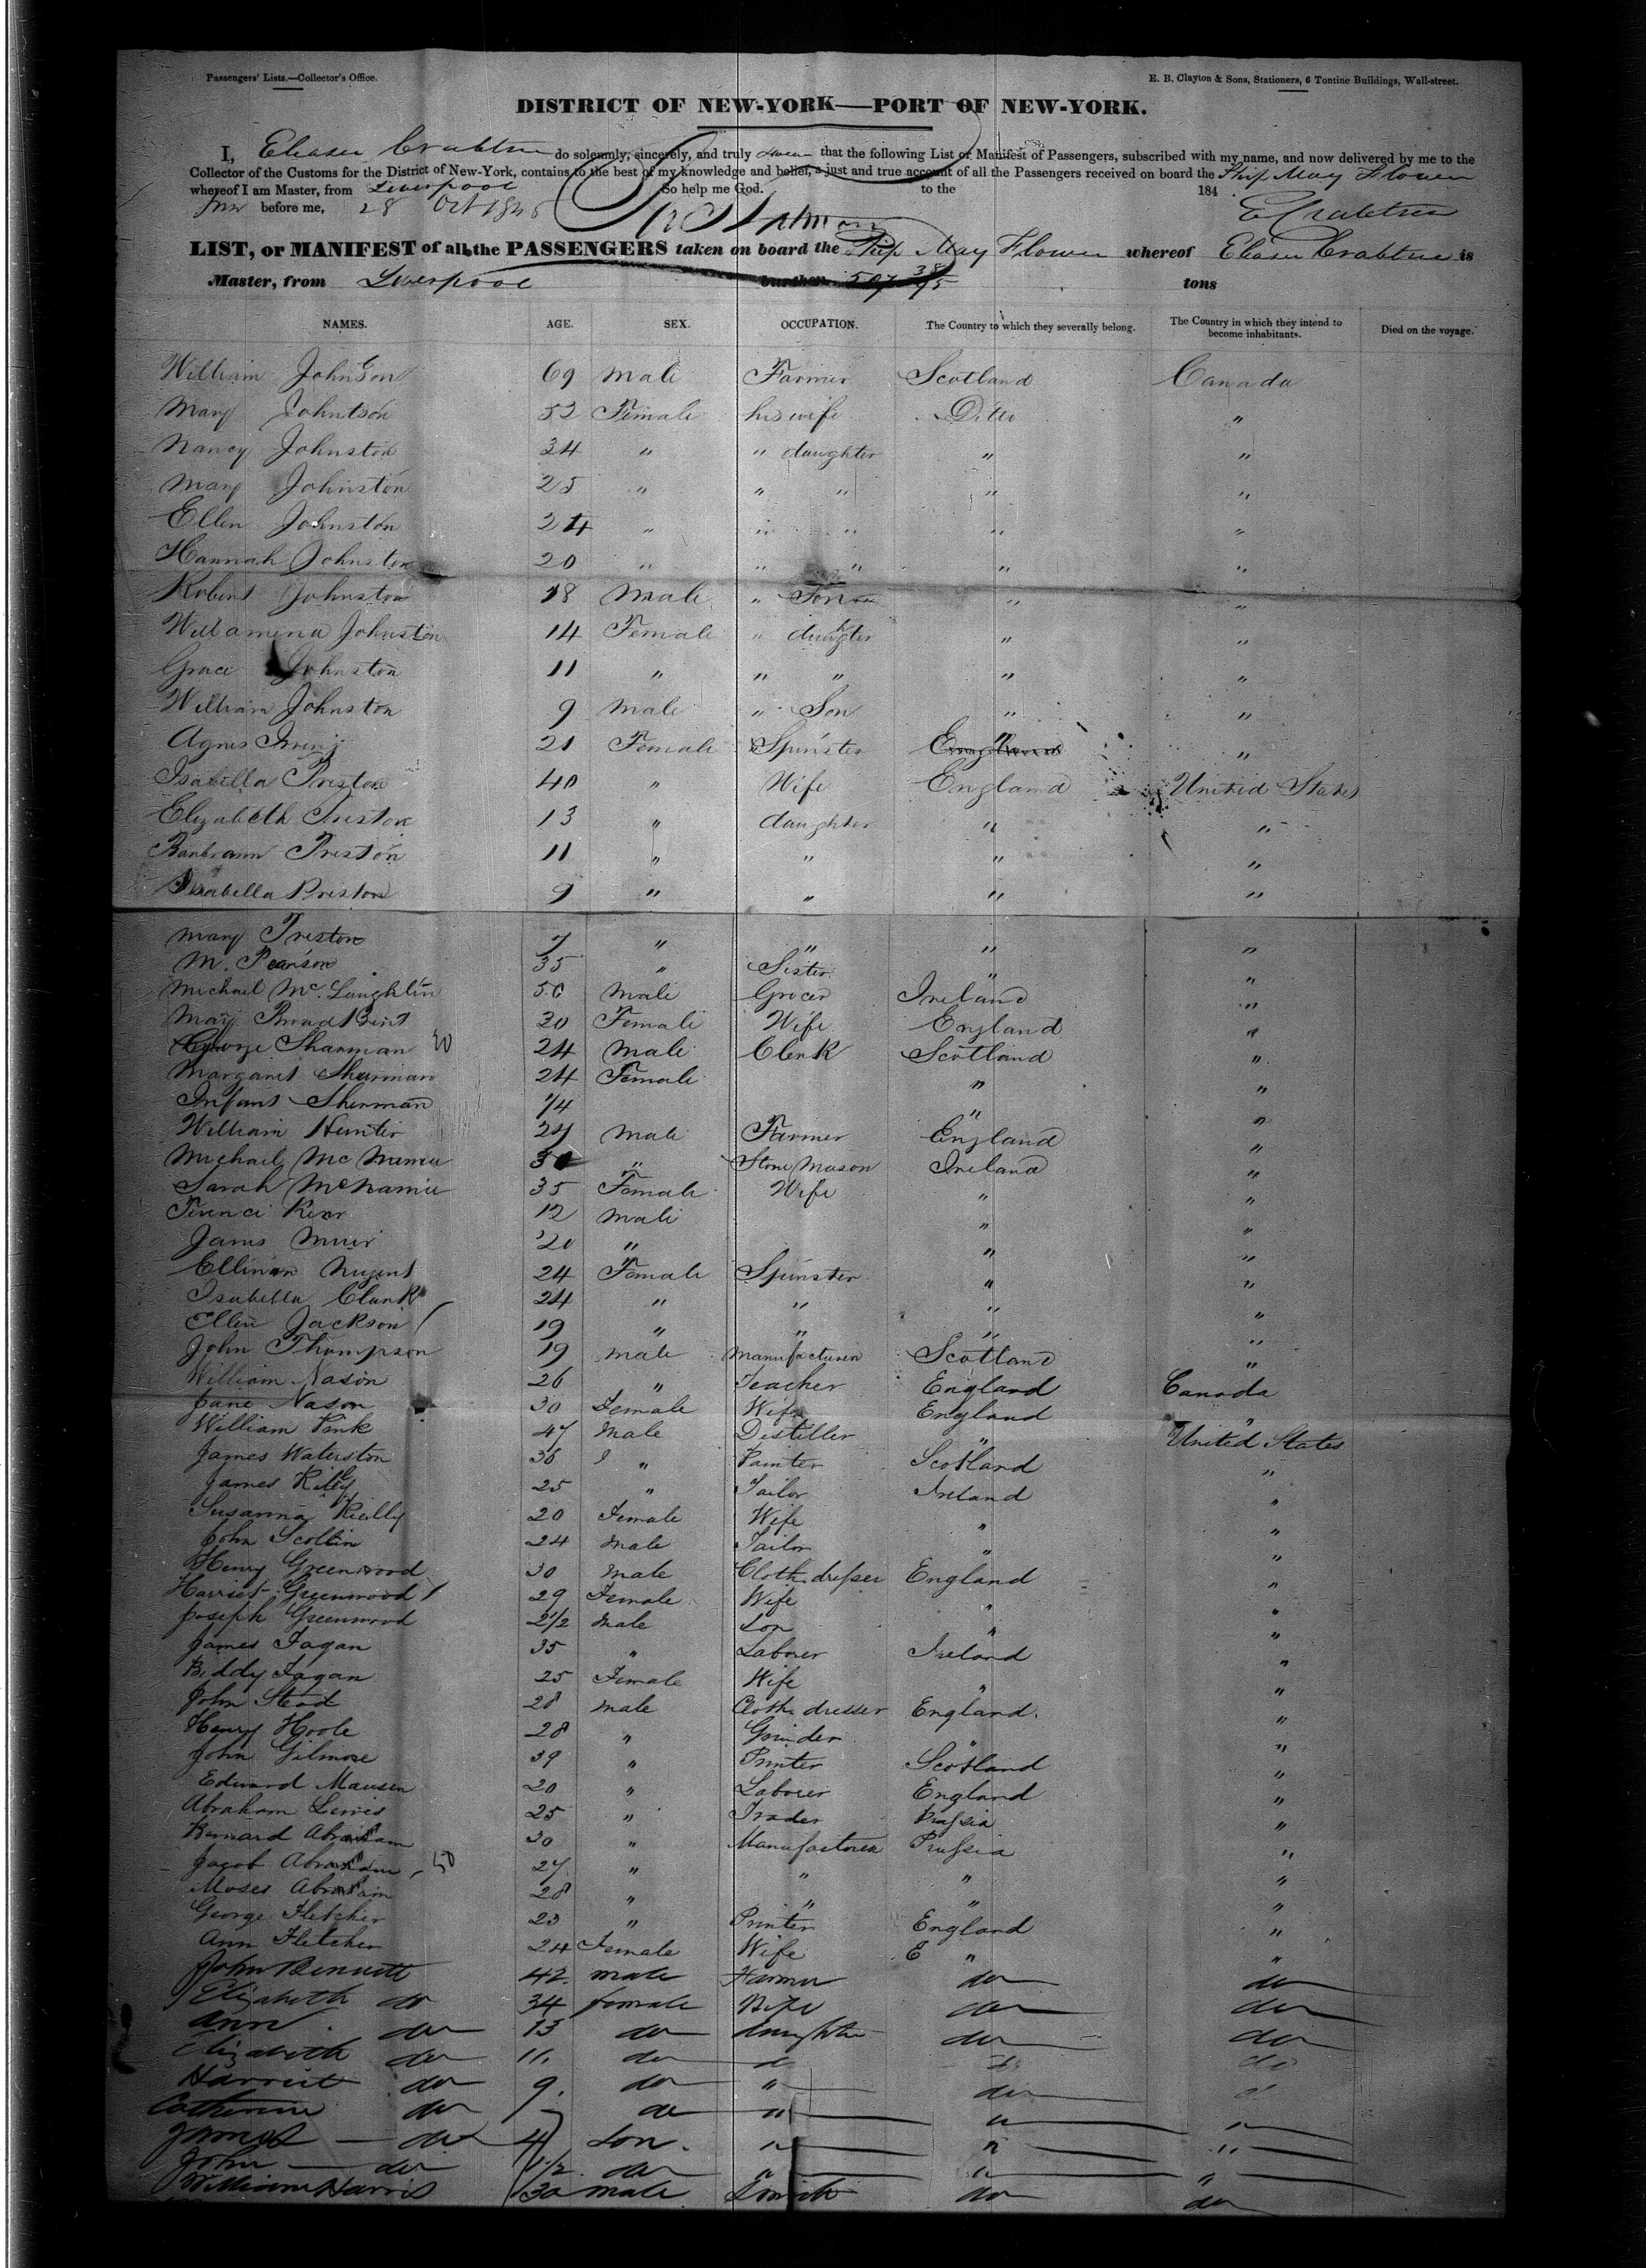 Passengers' Lists.—Collector's Office.
E. B. Clayton & Sons, Stationers, 6 Tontine Buildings, Wall-street.
DISTRICT OF NEW-YORK—PORT OF NEW-YORK.
I, Eleaser Crabtree do solemnly, sincerely, and truly swear that the following List or Manifest of Passengers, subscribed with my name, and now delivered by me to the
Collector of the Customs for the District of New-York, contains to the best of my knowledge and belief, a just and true account of all the Passengers received on board the Ship May Flower
whereof I am Master, from Liverpool So help me God. to the 184
before me, 28 Oct 1846 E Crabtree
LIST, or MANIFEST of all the PASSENGERS taken on board the Ship May Flower whereof Eleaser Crabtree is
Master, from Liverpool burthen 507 38/95 tons
NAMES. AGE. SEX. OCCUPATION. The Country to which they severally belong. The Country in which they intend to become inhabitants. Died on the voyage.
William Johnson 69 Male Farmer Scotland Canada
Mary Johntson 52 Female his wife Ditto "
Nancy Johnston 34 " " daughter " "
Mary Johnston 25 " " " " "
Ellen Johnston 24 " " " " "
Hannah Johnston 20 " " " " "
Robert Johnston 18 Male " Son " "
Willamena Johnston 14 Female " daughter " "
Grace Johnston 11 " " " " "
William Johnston 9 Male " Son " "
Agnes Irving 21 Female Spinster " "
Isabella Preston 40 " Wife England United States
Elizabeth Preston 13 " daughter " "
Barbrann Preston 11 " " " "
Isabella Preston 9 " " " "
Mary Preston 7 " " " "
M. Pearson 35 " Sister " "
Michael Mc. Laughlin 50 Male Grocer Ireland "
Mary Broadbent 20 Female Wife England "
George Sharman 20 24 Male Clerk Scotland "
Margaret Sharman 24 Female " "
Infant Sherman 1/4 " "
William Hunter 27 Male Farmer England "
Michael McNamee " Stone Mason Ireland "
Sarah McNamee 35 Female Wife " "
Kerr 12 Male " "
James Muir 20 " " "
Ellinor Nugent 24 Female Spinster " "
Isabella Clark 24 " " " "
Ellen Jackson 19 " " " "
John Thompson 19 Male Manufacturer Scotland "
William Nason 26 " Teacher England Canada
Jane Nason 30 Female Wife England "
William Pink 47 Male Distiller " United States
James Waterston 36 " Painter Scotland "
James Riley 25 " Tailor Ireland "
Susanna Rielly 20 Female Wife " "
John Scollin 24 Male Tailor " "
Henry Greenwood 30 Male Cloth dresser England "
Harriet Greenwood 29 Female Wife " "
Joseph Greenwood 2 1/2 Male Son " "
James Fagan 35 " Laborer Ireland "
Biddy Fagan 25 Female Wife " "
John Stead 28 Male Cloth dresser England "
Henry Hoole 28 " Grinder " "
John Gilmore 39 " Printer Scotland "
Edward Mausen 20 " Laborer England "
Abraham Lewis 25 " Trader Prussia "
Bernard Abraham 30 " Manufacturer Prussia "
Jacob Abraham 50 27 " " " "
Moses Abraham 28 " " " "
George Fletcher 23 " Printer England "
Ann Fletcher 24 Female Wife E " "
John Bennett 42 male Farmer do do
Elizabeth do 34 female Wife do do
Ann do 13 do daughter do do
Elizabeth do 11. do do do do
Harriet do 9. do " do do
Catherine do 7 do " " "
James do 4 Son " " "
John do 1/2 do " " "
William Harris 30 male Smith do do